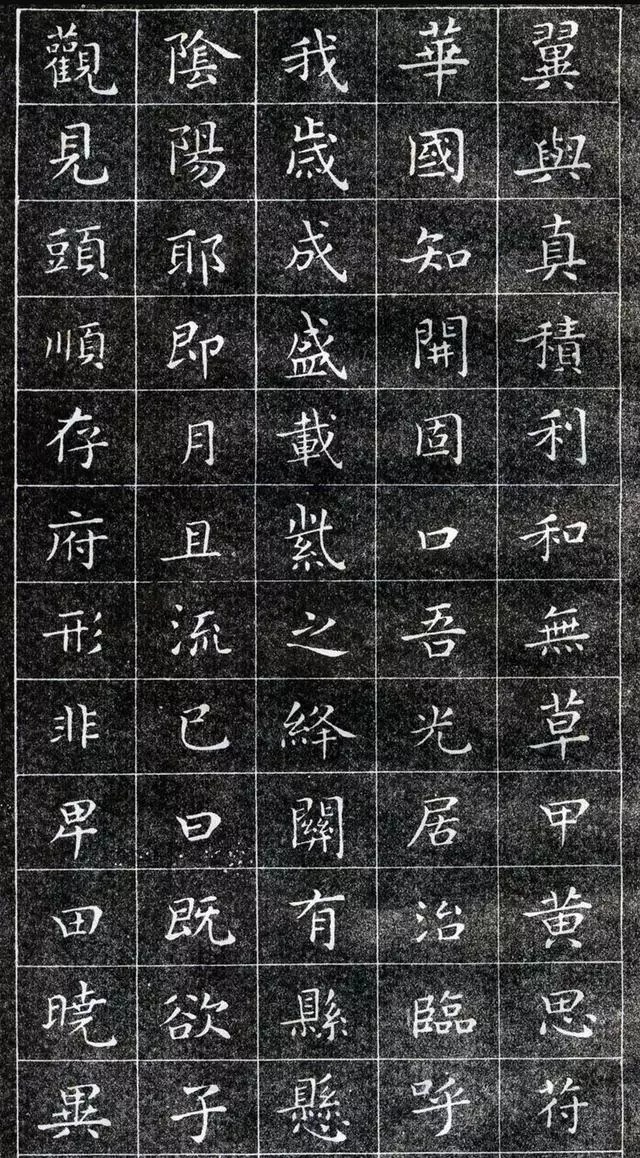 翼與真積利和無草甲黄思苻
華國知開固口吾光居治臨呼
我歲成盛載紫之絳關有縣懸
陰陽耶即月且流已曰既欲子
觀見頭順存府形非卑田曉畢